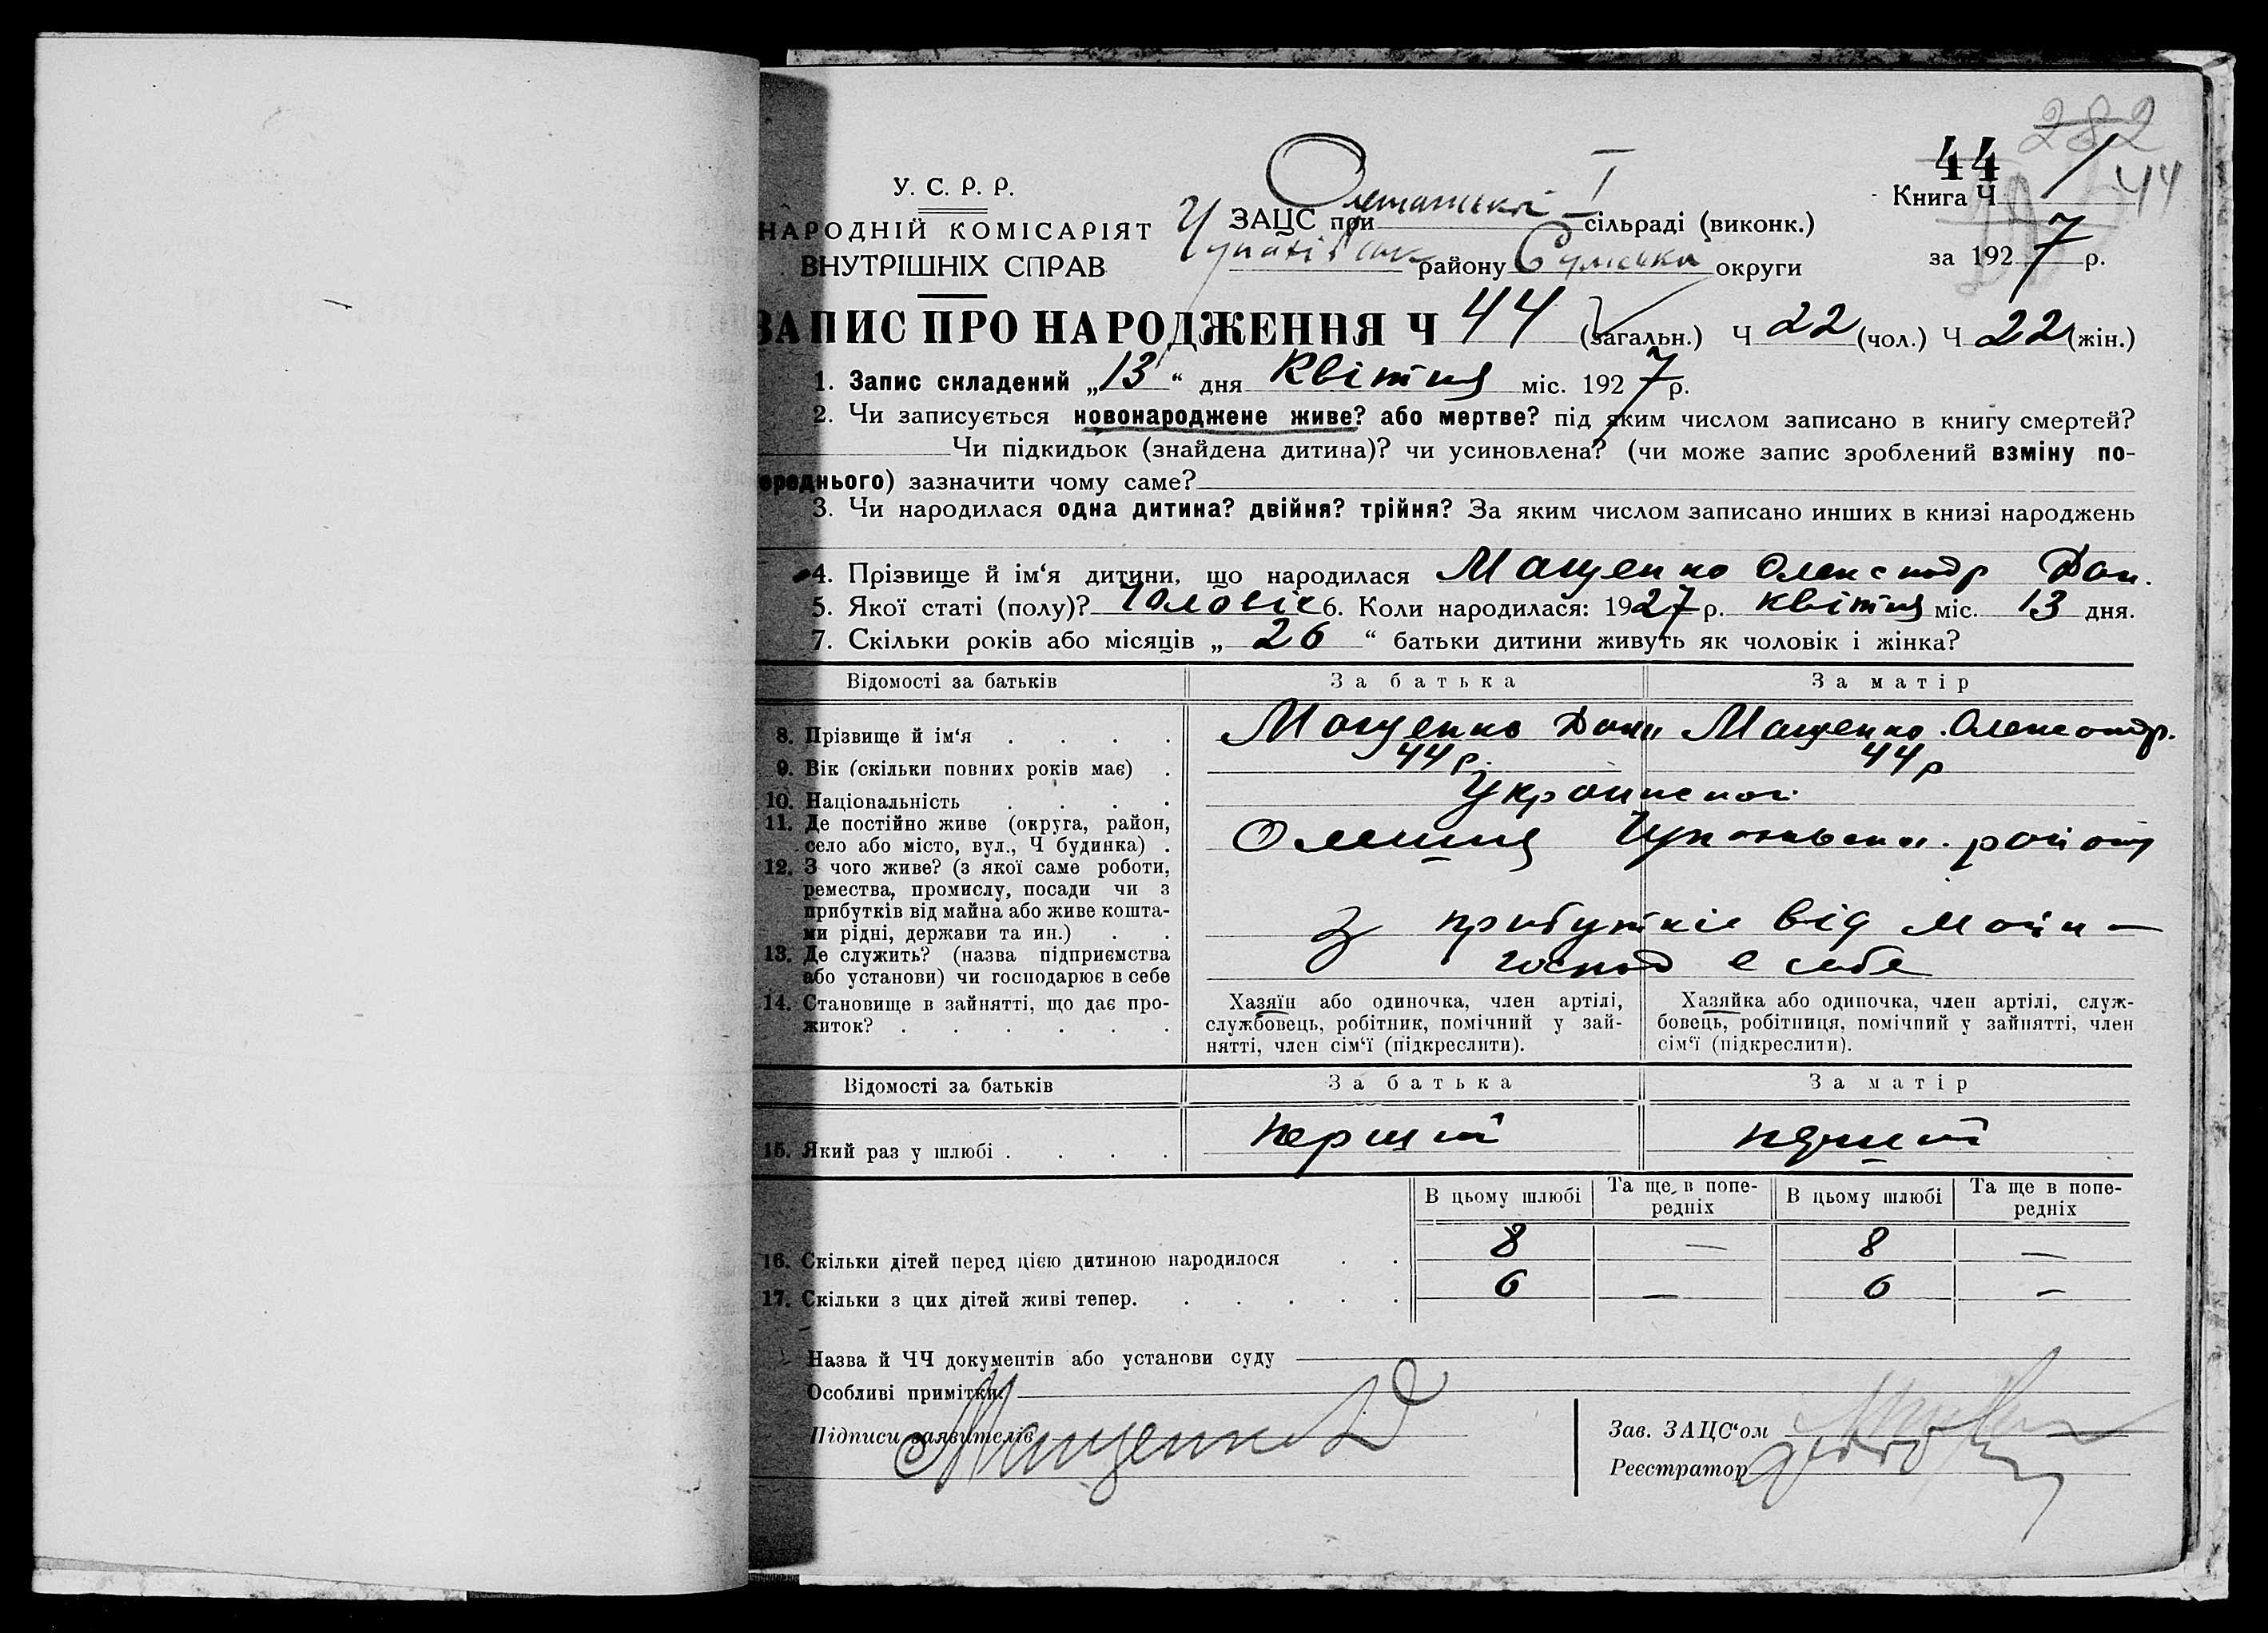 282
44
44
У. С. Р. Р.
НАРОДНІЙ КОМІСАРІЯТ
ВНУТРІШНІХ СПРАВ
ЗАЦС при I сільраді (виконк.)
району Сумської округи
Книга Ч 1
за 1927 р.
ЗАПИС ПРО НАРОДЖЕННЯ Ч 44 (загальн.) Ч 22 (чол.) Ч 22 (жін.)
1. Запис складений „13“ дня Квітня міс. 1927 р.
2. Чи записується новонароджене живе? або мертве? під яким числом записано в книгу смертей?
Чи підкидьок (знайдена дитина)? чи усиновлена? (чи може запис зроблений взміну по-
ереднього) зазначити чому саме?
3. Чи народилася одна дитина? двійня? трійня? За яким числом записано инших в книзі народжень
4. Прізвище й ім‘я дитини, що народилася Мащенко Олександр Дан.
5. Якої статі (полу)? Чоловіч 6. Коли народилася: 1927 р. квітня міс. 13 дня.
7. Скільки років або місяців „26“ батьки дитини живуть як чоловік і жінка?
Відомості за батьків За батька За матір
8. Прізвище й ім‘я . . . . Мащенко Дани Мащенко Олександр.
9. Вік (скільки повних років має) . 44 р. 44 р
10. Національність . . . .
11. Де постійно живе (округа, район,
село або місто, вул., Ч будинка) . Олешня району
12. З чого живе? (з якої саме роботи,
ремества, промислу, посади чи з
прибутків від майна або живе кошта-
ми рідні, держави та ин.) . . З прибутків від майн –
13. Де служить? (назва підприємства
або установи) чи господарює в себе господ в себе
14. Становище в зайнятті, що дає про-
житок? . . . . . .
Хазяїн або одиночка, член артілі,
службовець, робітник, помічний у зай-
нятті, член сім‘ї (підкреслити).
Хазяйка або одиночка, член артілі, служ-
бовець, робітниця, помічний у зайнятті, член
сім‘ї (підкреслити).
Відомості за батьків За батька За матір
15. Який раз у шлюбі . . . . перший перший
В цьому шлюбі Та ще в попе-
редніх В цьому шлюбі Та ще в попе-
редніх
16. Скільки дітей перед цією дитиною народилося . . 8 — 8 —
17. Скільки з цих дітей живі тепер. . . . . . 6 — 6 —
Назва й ЧЧ документів або установи суду
Особливі примітки.
Підписи заявителів Мащенко Д
Зав. ЗАЦС‘ом
Реєстратор